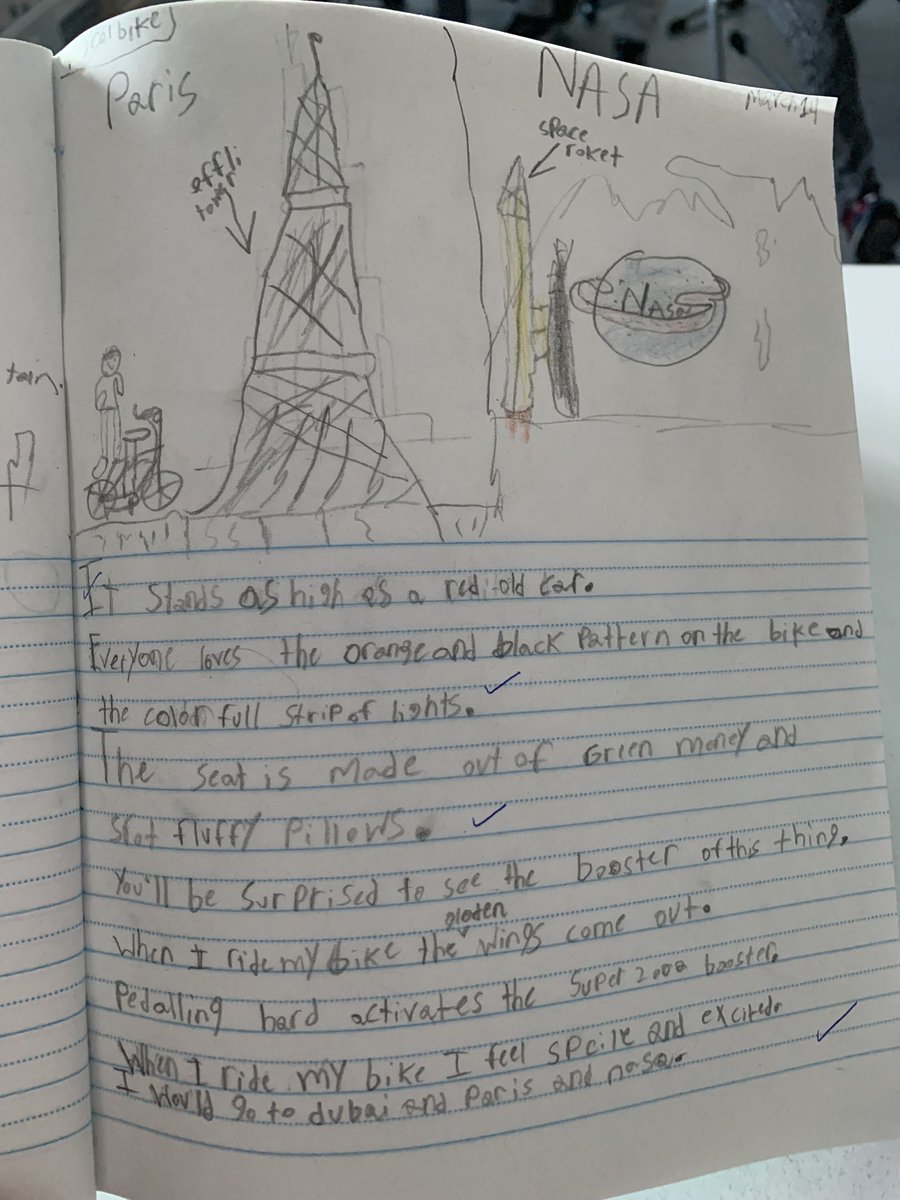 bike)
Paris
NASA
March 14
space
roket
effli
towr
NASA
tain.
It stands as high as a red old car.
Everyone loves the orange and black Pattern on the bike and
the colorfull strip of lights.
The seat is made out of Green money and
fluffy Pillows.
You'll be surprised to see the booster of this thing.
golden
When I ride my bike the wings come out.
Pedalling hard activates the super 2000 booster.
When I ride my bike I feel and excited.
I would go to dubai and Paris and nasa.